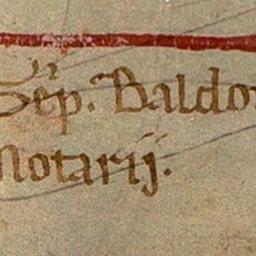 Sēp. Baldo
Notarij.